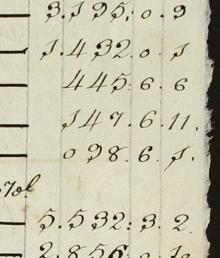 3.195:0.9
1.432.0.1
445:6.6
147.6.11.
098.6.1.
5.532:3.2
2.856.